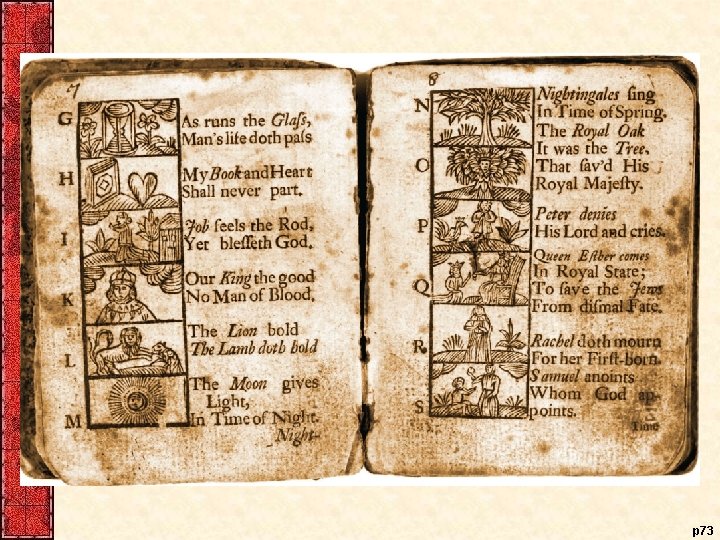 7
G As runs the Glaſs,
Man's life doth paſs
H My Book and Heart
Shall never part.
I Job feels the Rod,
Yet bleſſeth God.
K Our King the good
No Man of Blood.
L The Lion bold
The Lamb doth hold
The Moon gives
Light,
M In Time of Night.
Night-
8
N Nightingales ſing
In Time of Spring.
The Royal Oak
It was the Tree,
O That ſav'd His
Royal Majeſty.
P Peter denies
His Lord and cries.
Queen Eſther comes
In Royal State;
Q To ſave the Jews
From diſmal Fate.
R Rachel doth mourn
For her Firſt-born.
Samuel anoints
Whom God ap-
S points.
Time
p73